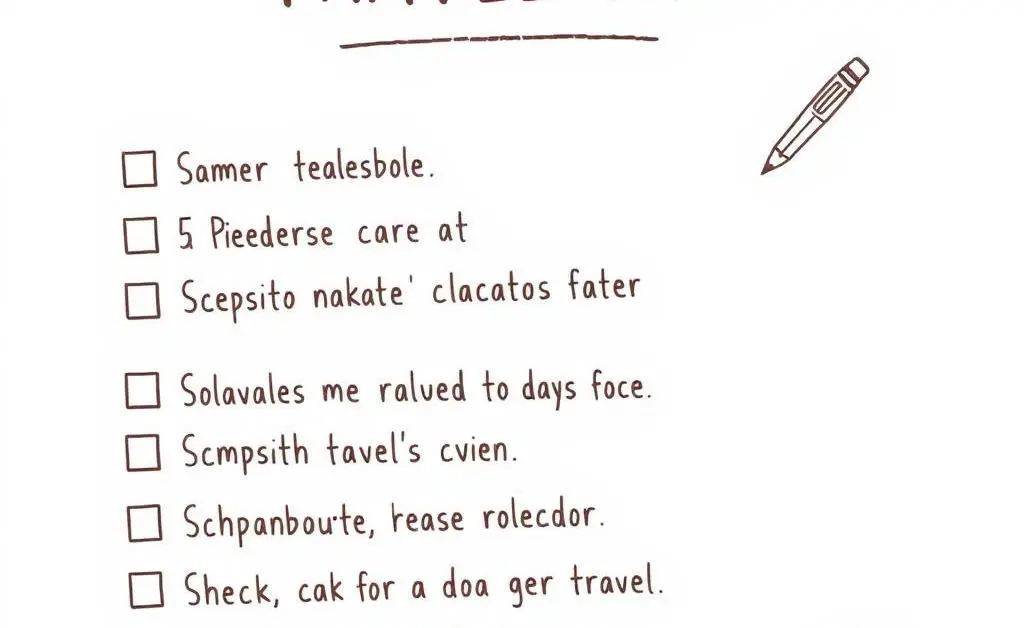 Sammer tealesbole.
5 Pieederse care at
Scepsito nakate' clacatos fater
Solavales me ralued to days foce.
Scmpsith tavel's cvien.
Schpanboute, rease rolecdor.
Sheck, cak for a doa ger travel.